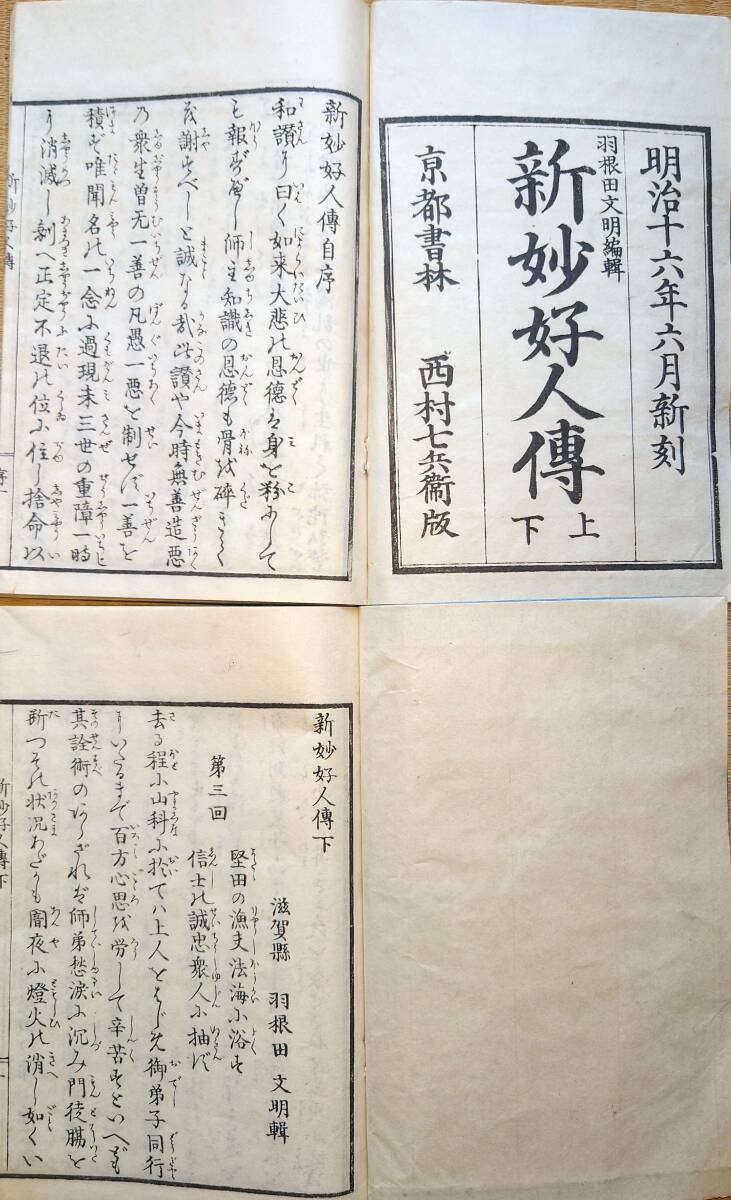 明治十六年六月新刻
羽根田文明編輯
新妙好人傳
上
下
京都書林
西村七兵衞版
新妙好人傳自序
和讃に曰く如来大悲の恩德は身を粉にして
も報ずべし師主知識の恩德も骨を碎きても
謝すべしと誠なる哉此讃や今時無善造悪
乃衆生曽无一善の凡愚一悪を制せず一善を
積ず唯聞名の一念に過現未三世の重障一時
に消滅し剰へ正定不退の位に住し捨命以
新妙好人傳
序一
新妙好人傳下
滋賀縣 羽根田文明輯
第三回
堅田の漁夫法海に浴す
信士の誠忠衆人に抽ず
去る程に山科に於ては上人をはじめ御弟子同行
にいたるまで百方心思を労して辛苦すといへども
其詮術のあらざれば師弟愁淚に沉み門徒膓を
断つその状况あだかも闇夜に燈火の消し如くい
新妙好人傳下